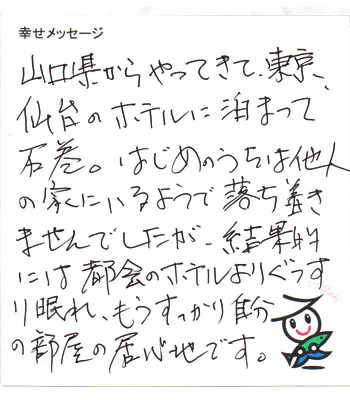 幸せメッセージ
山口県からやってきて、東京、
仙台のホテルに泊まって
石巻。はじめのうちは他人
の家にいるようで落ち着き
ませんでしたが、結果的
には都会のホテルよりぐっす
り眠れ、もうすっかり自分
の部屋の居心地です。